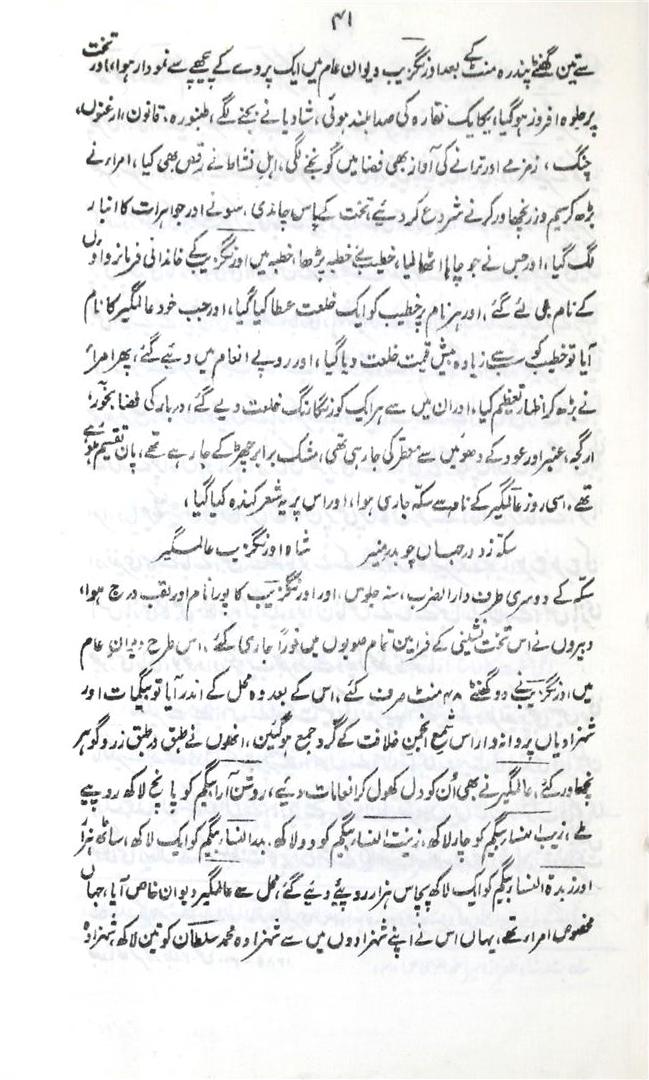 ۴۱
سے تین گھنٹے پندرہ منٹ کے بعد اورنگزیب دیوان عام میں ایک پردے کے پیچھے سے نمودار ہوا، اور تخت
پر جلوہ افروز ہوگیا، یکایک نقارہ کی صدا بلند ہوئی، شادیانے بجنے لگے، طنبورہ، قانون، ارغنوں،
چنگ، زمزمے اور ترانے کی آواز بھی فضا میں گونجنے لگی، اہل نشاط نے رقص بھی کیا، امراء نے
بڑھ کر سیم و زر نچھاور کرنے شروع کر دیئے، تخت کے پاس چاندی، سونے اور جواہرات کا انبار
لگ گیا، اور جس نے جو چاہا اٹھا لیا، خطیب نے خطبہ پڑھا، خطبہ میں اورنگزیب کے خاندانی فرمانرواؤں
کے نام بھی لئے گئے، اور ہر نام پر خطیب کو ایک خلعت عطا کیا گیا، اور جب خود عالمگیر کا نام
آیا تو خطیب کو سب سے زیادہ بیش قیمت خلعت دیا گیا، اور روپے انعام میں دیئے گئے، پھر امراء
نے بڑھ کر اظہار تعظیم کیا، اور ان میں سے ہر ایک کو رنگارنگ خلعت دیے گئے، دربار کی فضا بخور،
ارگجہ، عنبر اور عود کے دھوئیں سے معطر کی جا رہی تھی، مشک برابر چھڑکے جا رہے تھے، پان تقسیم ہو رہے
تھے، اسی روز عالمگیر کے نام سے سکہ جاری ہوا، اور اس پر یہ شعر کندہ کیا گیا،
سکہ زد در جہاں چو بدر منیر شاہ اورنگزیب عالمگیر
سکہ کے دوسری طرف دار الضرب، سنہ جلوس، اور اورنگزیب کا پورا نام اور لقب درج ہوا،
دبیروں نے اس تخت نشینی کے فرامین تمام صوبوں میں فوراً جاری کئے، اس طرح دیوان عام
میں اورنگزیب نے دو گھنٹے ۴۸ منٹ صرف کئے، اس کے بعد وہ محل کے اندر آیا تو بیگمات اور
شہزادیاں پروانہ وار اس شمع انجمن خلافت کے گرد جمع ہوگئین، انھوں نے طبق در طبق زر و گوہر
نچھاور کئے، عالمگیر نے بھی اُن کو دل کھول کر انعامات دیئے، روشن آرا بیگم کو پانچ لاکھ روپیے
ملے، زیب النسار بیگم کو چار لاکھ، زینت النسار بیگم کو دو لاکھ، بدر النسار بیگم کو ایک لاکھ، ساٹھ ہزار
اور زبدۃ النسار بیگم کو ایک لاکھ پچاس ہزار روپئے دیئے گئے، محل سے عالمگیر دیوان خاص آیا، جہاں
مخصوص امراء تھے، یہاں اس نے اپنے شہزادوں میں سے شہزادہ محمد سلطان کو تین لاکھ، شہزادہ